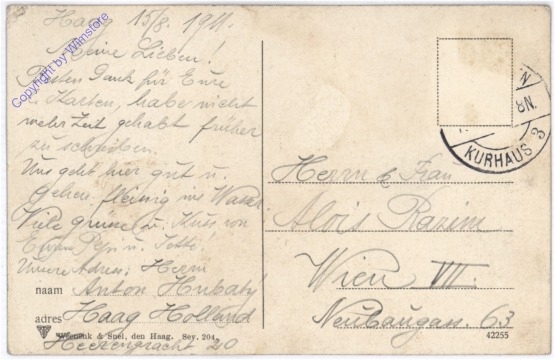 Haag 15/8. 1911.
Meine Lieben!
Besten Dank für Eure
Karten, habe nicht
mehr Zeit gehabt früher
zu schreiben.
Uns geht hier gut u.
gehen fleissig ins Wasser
Viele Grüsse u. Kuss von
Eurem Pepi u. Tetti!
Unsere Adres: Herrn
naam Anton Hubatý
adres Haag Holland
Wienink & Snel, den Haag. Sey. 204.
Heerengracht 20
Copyright by Wilmstore
N
8N.
KURHAUS 3
Herrn & Frau
Alois Razim
Wien VII.
Neubaugas. 63
42255